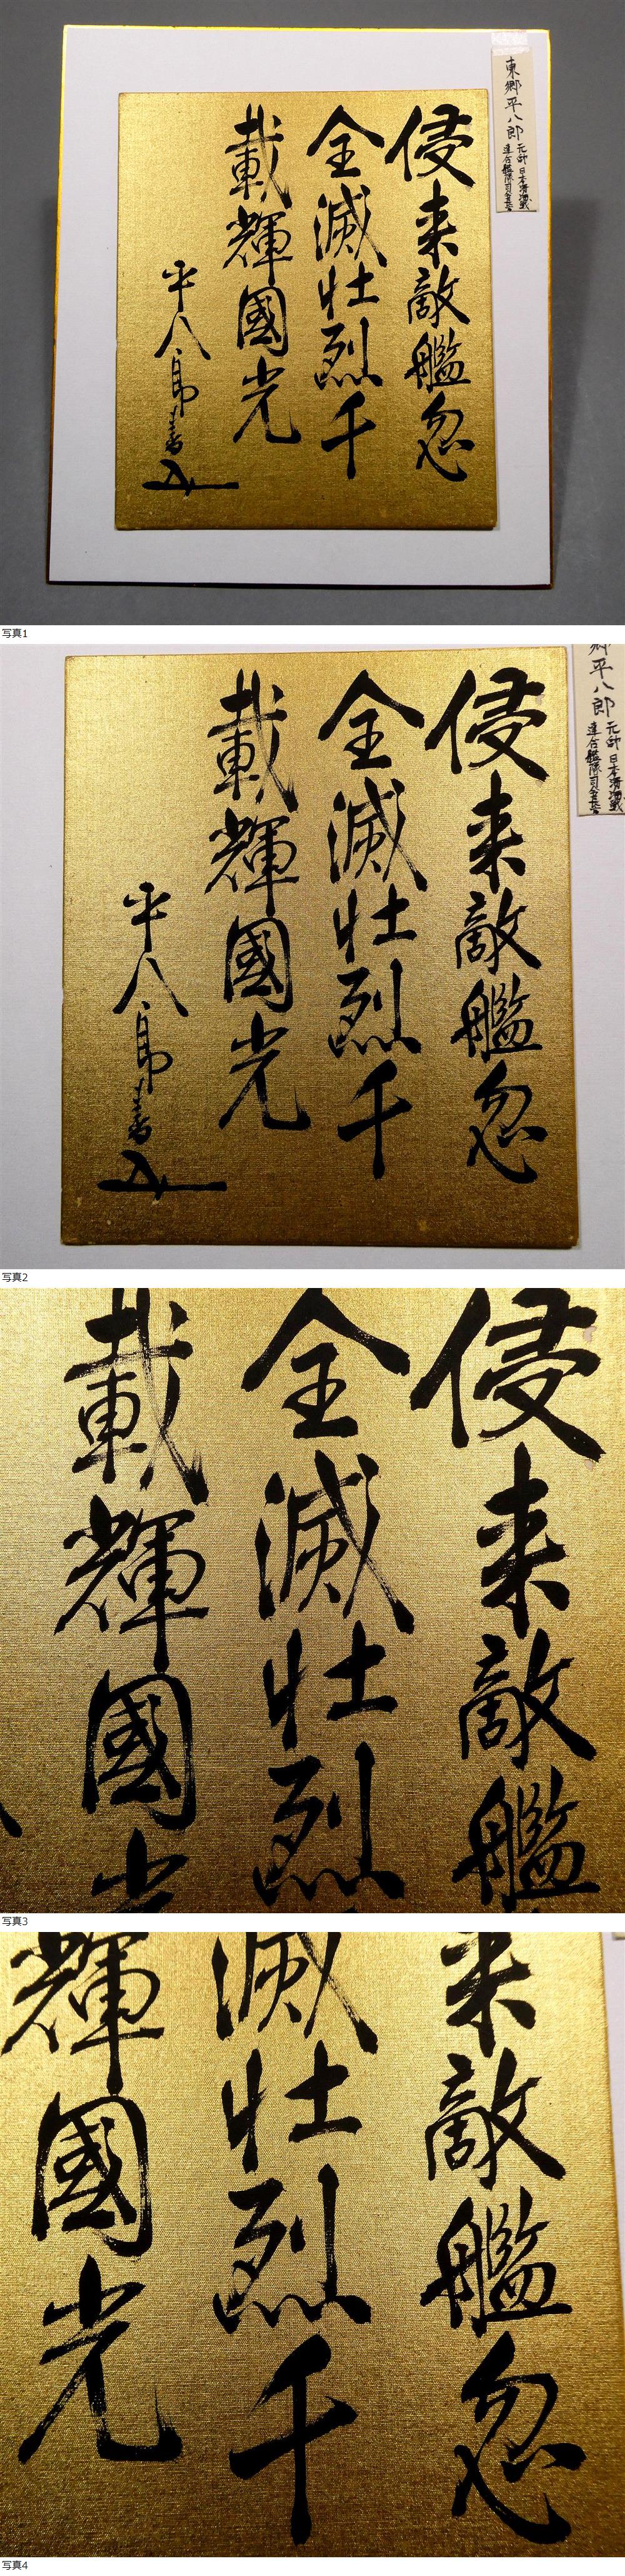 侵来敵艦忽
全滅壮烈千
載輝國光
平八郎書
東郷平八郎
元帥 日本海海戦
連合艦隊司令長官
写真1
侵来敵艦忽
全滅壮烈千
載輝國光
平八郎書
郷平八郎
元帥 日本海海戦
連合艦隊司令長官
写真2
侵来敵艦
全滅壮烈
載輝國光
写真3
来敵艦忽
滅壮烈千
輝國光
写真4